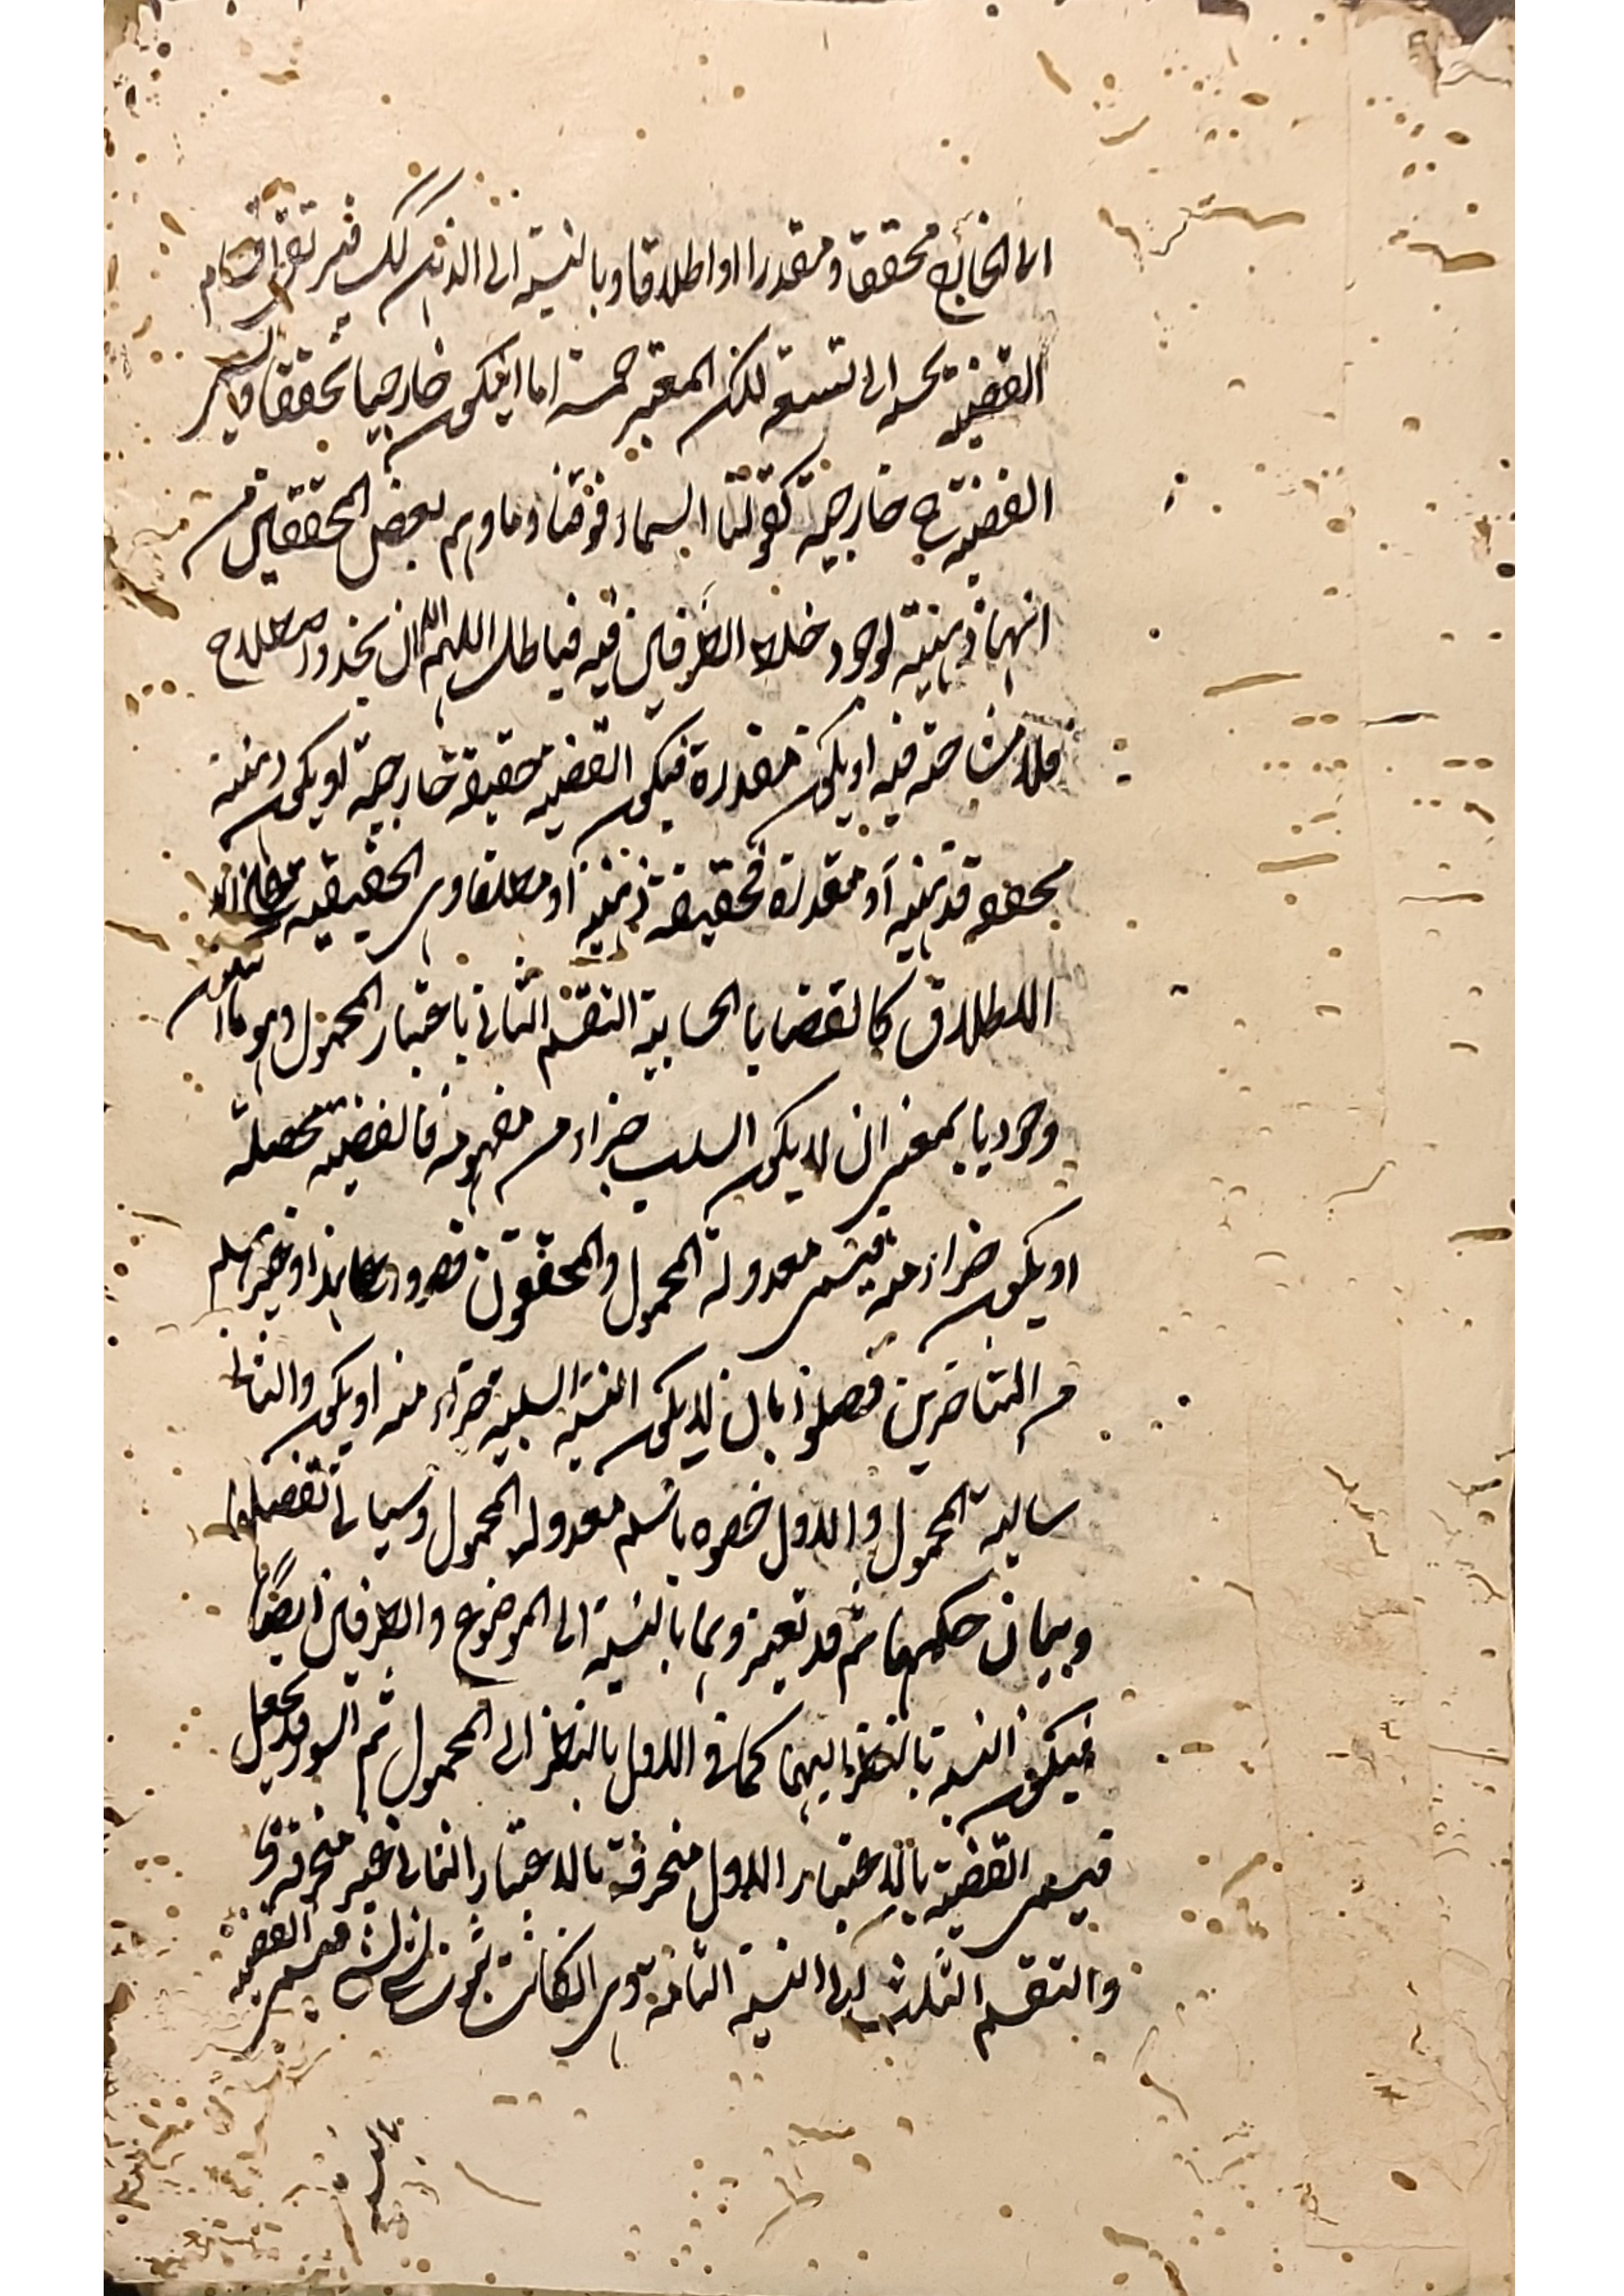 الى الخارج محققا ومقدرا او اطلاقا وبالنسبة الى الذهن كذلك فيرتقى اقسام
القضية بحسبه الى تسعة لكن المعتبر خمسة اما ان يكون خارجيا محققا
القضية ح خارجية كقولنا السماء فوقنا وما وهم بعض المحققين من
انها ذهنية لوجود خلاء الطرفين فيه فباطل اللهم الا ان يجدد اصطلاح
فلا مشاحة فيه او يكون مقدرة فيكون القضية حقيقة خارجية او يكون ذهنية
محققه فذهنية او مقدرة فحقيقة ذهنية او مطلقا وهى الحقيقية
الاطلاق كالقضايا الحسابية التقسم الثانى باعتبار المحمول وهو اما ان يكون
وجوديا بمعنى ان لا يكون السلب جزاء من مفهومه فالقضية محصلة
او يكون جزاء منه فيسمى معدولة المحمول والمحققون قصروا على هذا وغيرهم
من المتاخرين فصلوا بان لا يكون النسبة السلبية جزاء منه او يكون والثانى
سالبة المحمول والاول خصوه باسم معدولة المحمول وسياتى تفصيلها
وبيان حكمهما ثم قد تعتبر وهما بالنسبة الى الموضوع والطرفين ايضًا
فيكون النسبة بالنظر اليهما كما فى الاول بالنظر الى المحمول ثم السور قد يجعل
فيسمى القضية بالاعتبار الاول منحرفة بالاعتبار الثانى غير منحرفة
والتقسم الثالث الى النسبة التامة وهى ان كانت ثبوت فيسمى القضية
بالنسبة